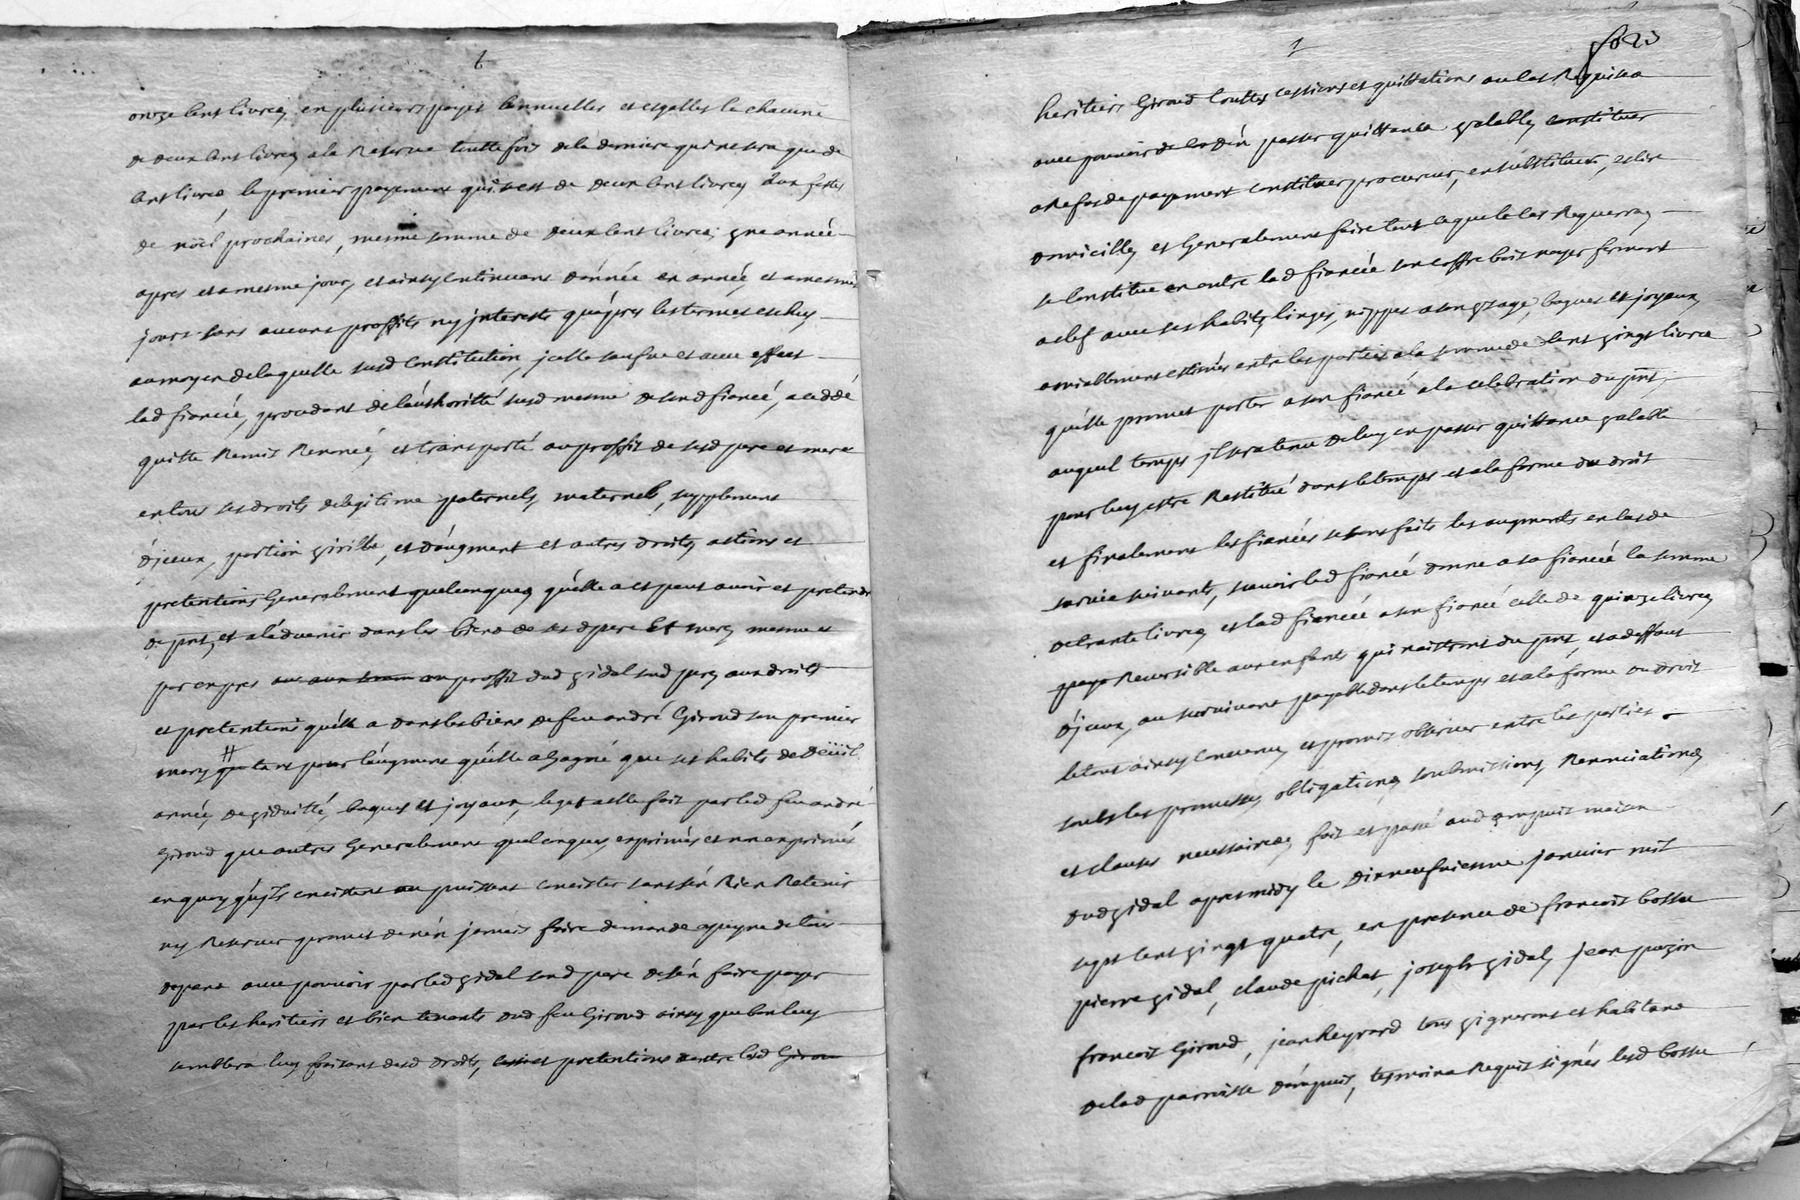 1
onze cent livres, en plusieurs payes annuelles et esgalles de chacune
de deux cent livres a la Reserve touttefois de la derniere qui ne sera que de
cent livres, le premier payement qui sera de deux cent livres aux festes
de noël prochaines, mesme somme de deux cent livres, une année
apres et a mesme jour, et ainsy continuant d'année en année, et a mesmes
jours sans aucuns proffits ny interests qu'apres les termes escheus
au moyen de laquelle susd constitution, jcelle sauf ue et avec effect
lad fiancée, procedant de l'authoritté susd mesme de send fiancé, a ceddé
quitte Remis Renoncé, et transporté au proffit de sesd pere et mere
en tous ses droits de legitime paternels, maternels, supplement
d'jceux, portion virille, et d'augment et autres droits, actions et
pretentions Generalement quelconques qu'elle a et peut avoir et pretendre
de pnt, et a l'advenir dans les biens de sesd pere et mere, mesme et
par expres au proffit dud vidal sond pere, aux droits
et pretentions qu'elle a dans les biens de feu andré Giroud son premier
mary tant pour l'augment qu'elle a Gagné que ses habits de deüil
année de viduitté, bagues et joyaux, legat a elle fait par led feu andré
Giroud que autres Generalement quelconques, exprimés et non exprimés
en quoy qu'jls consistent ou puissent consister sans s'en Rien Retenir
ny Reserver promet de n'en jamais faire demande a peyne de tous
depens avec pouvoir par led vidal sond pere de s'en faire payer
par les heritiers et bien tenants dud feu Giroud ainsy que bon luy
semblera luy faisant desd droits, et pretentions contre lesd Giroud
1
fo 23
heritiers Giroud touttes cessions et quittations au cas Requises
avec pouvoir de ce d'en passer quittance valable, constituer
a Refus de payement constituer procureur, en substituer, eslire
domicille, et Generalement faire tout ce que le cas Requerra,
se constitue en outre lad fiancée son coffre bois noyer fermant
a clef avec ses habits, linges, nippes a son usage, bagues et joyaux,
amiablement estimés entre les parties a la somme de cent vingt livres
qu'elle promet porter a son fiancé a la celebration du pnt,
auquel temps jl sera tenu de luy en passer quittance valable
pour luy estre Restitué dans le temps et a la forme du droit
et finalement les fiancés se sont faits les augments en cas de
survie suivants, sçavoir led fiancé donne a sa fiancée la somme
de trante livres, et lad fiancée a son fiancé celle de quinze livres,
gage Reversible aux enfants qui naistront du pnt, et a deffaut
d'jceux, au survivant payable dans le temps et a la forme du droit
le tout ainsy convenu, et promis observer entre les parties.
soubs les promesses, obligations, soubmissions, Renonciations,
et clauses necessaires, fait et passé aud ampuis maison
dud vidal apres midy le dixneufviesme janvier mil
sept cent vingt quatre, en presence de francois bossu
pierre vidal, claude pichat, joseph vidal, jean puzin
francois Giroud, jean Reynard tous vignerons et habitans
de lad parroisse d'ampuis, tesmoins Requis signés lesd bossu